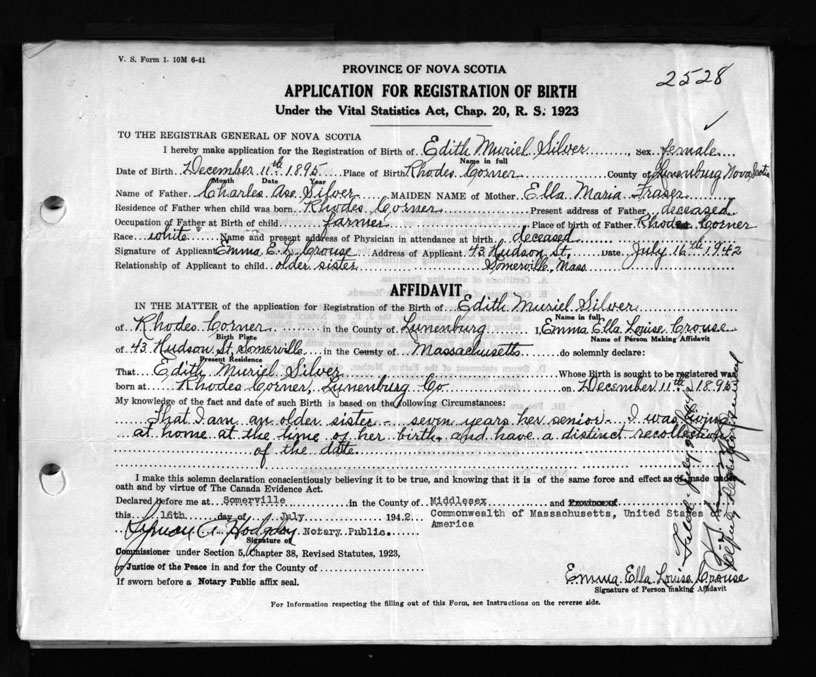 V. S. Form 1. 10M 6-41
2528
PROVINCE OF NOVA SCOTIA
APPLICATION FOR REGISTRATION OF BIRTH
Under the Vital Statistics Act, Chap. 20, R. S. 1923
TO THE REGISTRAR GENERAL OF NOVA SCOTIA
I hereby make application for the Registration of Birth of Edith Muriel Silver Sex female
Name in full
Date of Birth December 11th 1895 Place of Birth Rhodes Corner County of Lunenburg Nova Scotia
Month Date Year
Name of Father Charles Ase Silver MAIDEN NAME of Mother Ella Maria Fraser
Residence of Father when child was born Rhodes Corner Present address of Father deceased
Occupation of Father at Birth of child farmer Place of birth of Father Rhodes Corner
Race white Name and present address of Physician in attendance at birth deceased
Signature of Applicant Emma E. L. Crouse Address of Applicant 43 Hudson St, Date July 16th 1942
Relationship of Applicant to child older sister Somerville, Mass
AFFIDAVIT
IN THE MATTER of the application for Registration of the Birth of Edith Muriel Silver
Name in full
of Rhodes Corner in the County of Lunenburg I, Emma Ella Louise Crouse
Birth Place Name of Person Making Affidavit
of 43 Hudson St, Somerville in the County of Massachusetts do solemnly declare:
Present Residence
That Edith Muriel Silver Whose Birth is sought to be registered was
born at Rhodes Corner, Lunenburg Co on December 11th 1895
My knowledge of the fact and date of such Birth is based on the following Circumstances:
That I am an older sister - seven years her senior - I was living
at home at the time of her birth, and have a distinct recollection
of the date
I make this solemn declaration conscientiously believing it to be true, and knowing that it is of the same force and effect as if made under
oath and by virtue of The Canada Evidence Act.
Declared before me at Somerville in the County of Middlesex and Province of
this 16th day of July 1942 Commonwealth of Massachusetts, United States of
America
Notary Public.
Signature of
Commissioner under Section 5, Chapter 38, Revised Statutes, 1923,
or Justice of the Peace in and for the County of
Emma Ella Louise Crouse
If sworn before a Notary Public affix seal.
Signature of Person making Affidavit
For Information respecting the filling out of this Form, see Instructions on the reverse side.